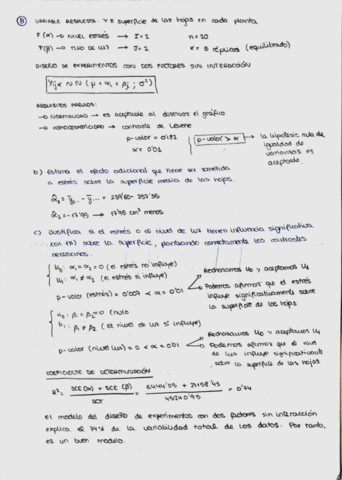 B) VARIABLE RESPUESTA: Y = superficie de las hojas en cada planta
F(α) → NIVEL ESTRÉS → I = 2 n = 20
F(β) → TIPO DE LUZ → J = 2 K = 5 réplicas (equilibrado)
DISEÑO DE EXPERIMENTOS CON DOS FACTORES SIN INTERACCIÓN
Yijk ~ N (μ + αi + βj ; σ²)
REQUISITOS PREVIOS:
→ NORMALIDAD → es aceptable al observar el gráfico
→ HOMOCEDASTICIDAD → contraste de Levene
p-valor = 0'182 p-valor > α → la hipótesis nula de igualdad de varianzas es aceptada.
α = 0'01
b) Estima el efecto adicional que tiene ser sometida
a estrés sobre la superficie media de las hojas.
α̂2 = ȳ2.. - ȳ... =
α̂2 = -17'95 → 17'95 cm² menos
c) Justifica si el estrés o el nivel de luz tienen influencia significativa
sobre la superficie, planteando correctamente los contrastes
necesarios.
H0: α1 = α2 = 0 (el estrés no influye)
H1: α1 ≠ α2 (el estrés sí influye)
p-valor (estrés) = 0'007 < α = 0'01
Rechazamos H0 y aceptamos H1
Podemos afirmar que el estrés
influye significativamente sobre
la superficie de las hojas
H0: β1 = β2 = 0 (nulo
H1: β1 ≠ β2 (el nivel de luz sí influye)
p-valor (nivel luz) = 0 < α = 0'01
Rechazamos H0 y aceptamos H1
Podemos afirmar que el nivel
de luz influye significativamente
sobre la superficie de las hojas
COEFICIENTE DE DETERMINACIÓN
R² = SCE(α) + SCE(β) / SCT = = 0'74
el modelo del diseño de experimentos con dos factores sin interacción
explica el 74% de la variabilidad total de los datos. Por tanto,
es un buen modelo.